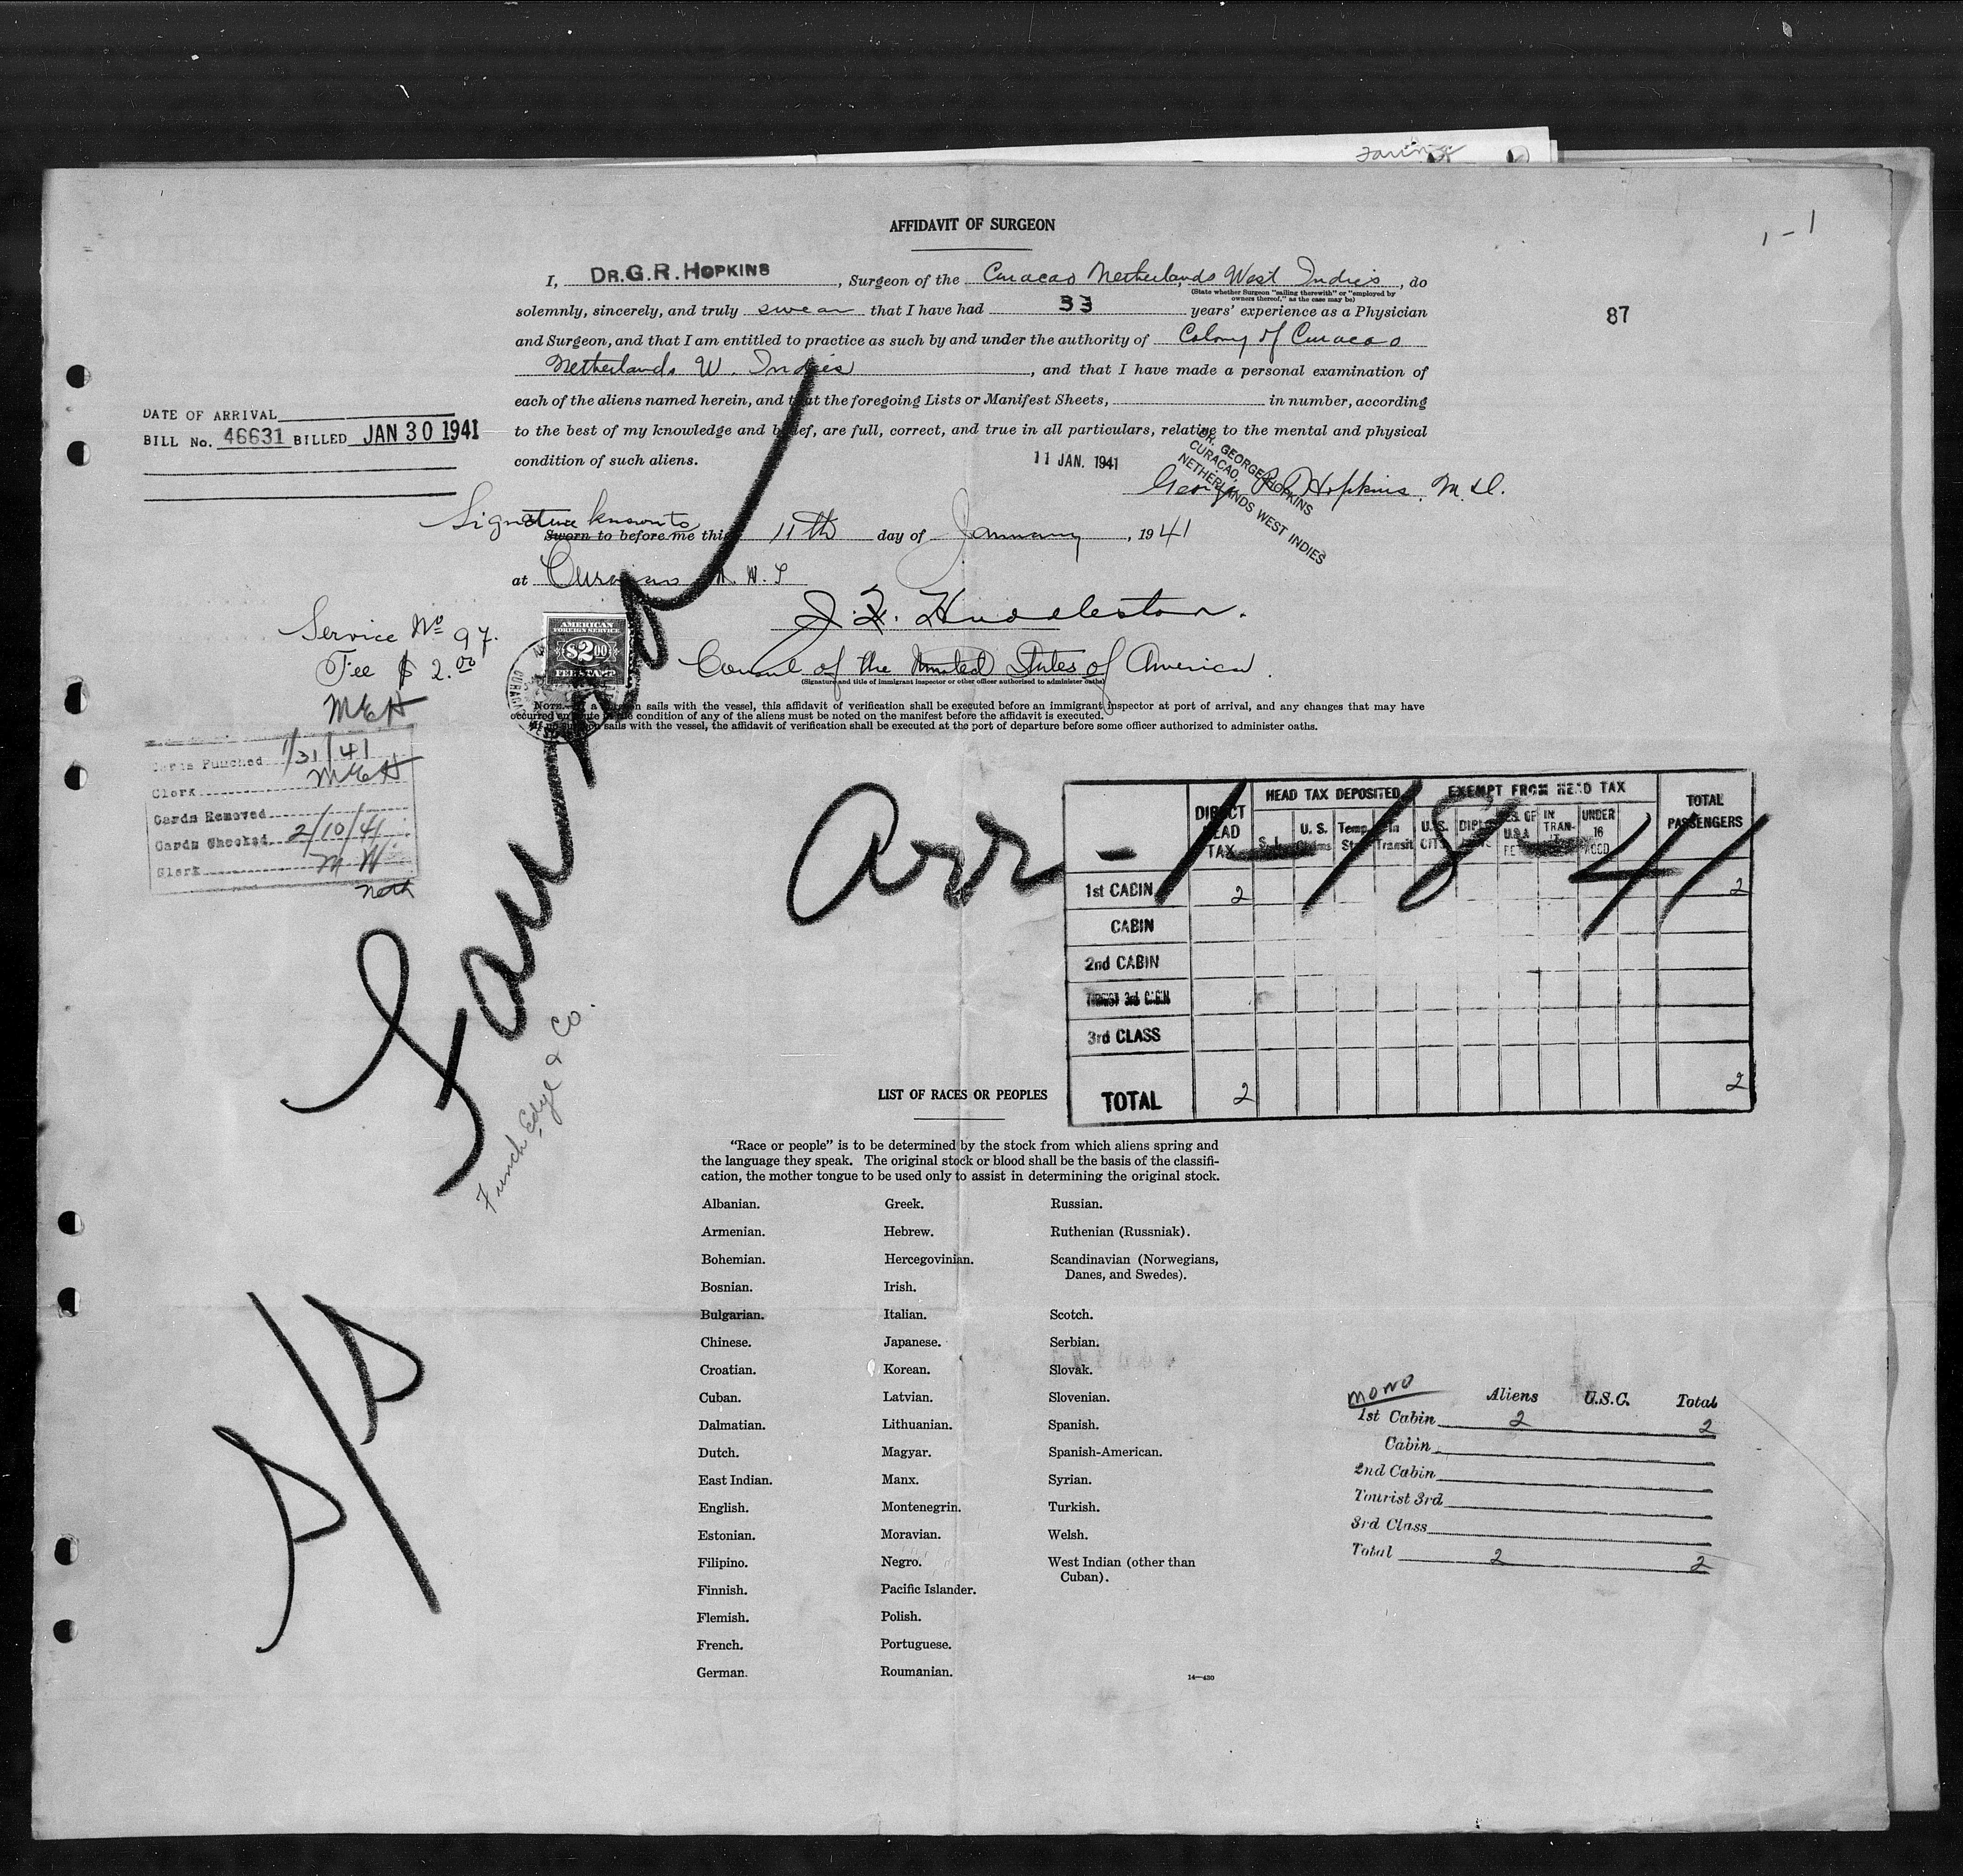 AFFIDAVIT OF SURGEON
1-1
I, DR. G. R. HOPKINS, Surgeon of the Curacao Netherlands West Indies, do
(State whether Surgeon "sailing therewith" or "employed by
owners thereof," as the case may be)
solemnly, sincerely, and truly swear that I have had 33 years' experience as a Physician
87
and Surgeon, and that I am entitled to practice as such by and under the authority of Colony of Curacao
Netherlands W. Indies, and that I have made a personal examination of
each of the aliens named herein, and that the foregoing Lists or Manifest Sheets, in number, according
to the best of my knowledge and belief, are full, correct, and true in all particulars, relative to the mental and physical
condition of such aliens.
DATE OF ARRIVAL
BILL No. 46631 BILLED JAN 30 1941
11 JAN. 1941
DR. GEORGE HOPKINS
CURACAO,
NETHERLANDS WEST INDIES
George R Hopkins. M.D.
Signature known to
Sworn to before me this 11th day of January, 1941
at Curacao N. W. I
J. F. Huddleston.
Consul of the United States of America.
(Signature and title of immigrant inspector or other officer authorized to administer oaths)
Service No 97.
Fee $ 2.00
AMERICAN
FOREIGN SERVICE
$2.00
FEE STAMP
NOTE.—If a surgeon sails with the vessel, this affidavit of verification shall be executed before an immigrant inspector at port of arrival, and any changes that may have
occurred en route in the condition of any of the aliens must be noted on the manifest before the affidavit is executed.
If no surgeon sails with the vessel, the affidavit of verification shall be executed at the port of departure before some officer authorized to administer oaths.
MEH
Cards Punched 1/31/41
Clerk MEH
Cards Removed
Cards Checked 2/10/41
Clerk M W
neth
Arr - 1/18-41
DIRECT HEAD TAX
HEAD TAX DEPOSITED
EXEMPT FROM HEAD TAX
TOTAL PASSENGERS
S. I.
U. S. Claims
Temp. Stay
In Transit
U. S. CIT.
IN TRANSIT
UNDER 16
1st CABIN 2 2
CABIN
2nd CABIN
TOURIST 3rd CABIN
3rd CLASS
TOTAL 2 2
Funch Edye & Co.
S/S
LIST OF RACES OR PEOPLES
"Race or people" is to be determined by the stock from which aliens spring and
the language they speak. The original stock or blood shall be the basis of the classifi-
cation, the mother tongue to be used only to assist in determining the original stock.
Albanian. Greek. Russian.
Armenian. Hebrew. Ruthenian (Russniak).
Bohemian. Hercegovinian. Scandinavian (Norwegians,
Danes, and Swedes).
Bosnian. Irish.
Bulgarian. Italian. Scotch.
Chinese. Japanese. Serbian.
Croatian. Korean. Slovak.
Cuban. Latvian. Slovenian.
Dalmatian. Lithuanian. Spanish.
Dutch. Magyar. Spanish-American.
East Indian. Manx. Syrian.
English. Montenegrin. Turkish.
Estonian. Moravian. Welsh.
Filipino. Negro. West Indian (other than
Cuban).
Finnish. Pacific Islander.
Flemish. Polish.
French. Portuguese.
German. Roumanian.
14—430
MONO Aliens U.S.C. Total
1st Cabin 2 2
Cabin
2nd Cabin
Tourist 3rd
3rd Class
Total 2 2